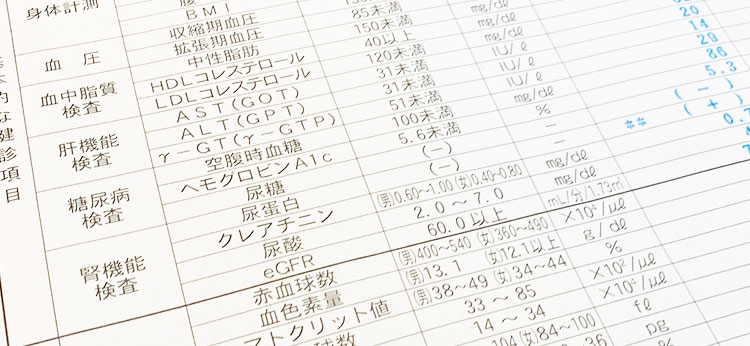 身体計測
BMI
収縮期血圧
血圧
拡張期血圧 85未満
中性脂肪 150未満 mg/dℓ
血中脂質検査
HDLコレステロール 40以上 mg/dℓ
LDLコレステロール 120未満 mg/dℓ
AST(GOT) 31未満 IU/ℓ 20
肝機能検査
ALT(GPT) 31未満 IU/ℓ 14
γ-GT(γ-GTP) 51未満 IU/ℓ 29
空腹時血糖 100未満 mg/dℓ 86
糖尿病検査
ヘモグロビンA1c 5.6未満 % 5.3
尿糖 (-) (-)
尿蛋白 (-) - ** (+)
腎機能検査
クレアチニン (男)0.60~1.00 (女)0.40~0.80 mg/dℓ
尿酸 2.0~7.0 mg/dℓ
eGFR 60.0以上 mL/分/1.73㎡
赤血球数 (男)400~540 (女)360~490 ×10⁴/μℓ
血色素量 (男)13.1 (女)12.1以上 g/dℓ
マトクリット値 (男)38~49 (女)34~44 %
33~85 ×10²/μℓ
14~34 ×10⁴/μℓ
(女)84~100 fℓ
pg
な健診項目